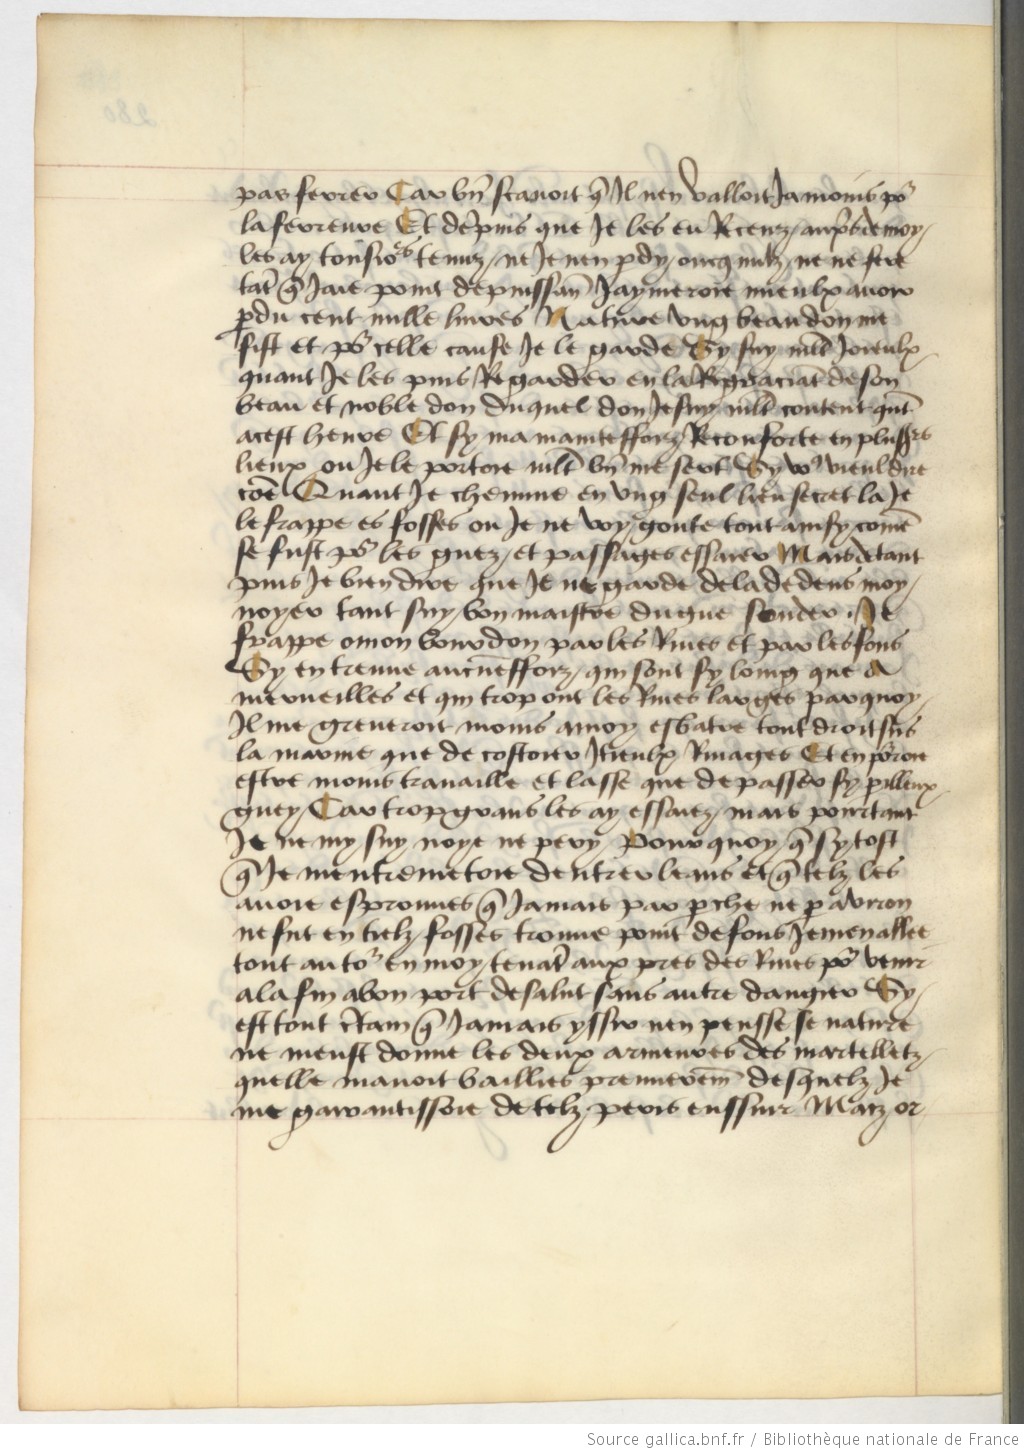 pas ferrer Car bn̄ scauoit q̄ Il nen valloit Ja moins po͛
la ferreure Et depuis que Je les eu Receuz / aup̄s de moy /
les ay tousio͛s tenuz / ne Je nen p̄dy / oncq nulz / ne ne fere
tat̄ q̄ Jaie point de puissan̄ Jaymeroie mieulx auoir
p̄du cent mille liures Nature vng beau don me
fist et po͛ celle cause Je le garde Sy suy mlt̄ Joieulx /
quant Je les puis Regarder en la Regraciat̄ de son
beau et noble don duquel don Je suy mlt̄ content qnt̄
a cest heure Et sy ma maintesfforz Reconforte en pluss͛rs
lieux ou Je le portoie mlt̄ bn̄ me sert Sy vo͛ vieul dire
coē Quant Je chemine en vng seul lieu secret la Je
le frappe es fosses ou Je ne voy / goute tout ainsy comē
se fust po͛ les guez / et passages essaier Mais de tant
puis Je bien dire que Je ne garde de la dedens moy /
noyer tant suy / bon maistre du gue sonder Je
frappe o mon bourdon par les Riues et par les fons
Sy en treuue aucunesfforz / qui sont sy loing que a
merueilles et qui trop ont les Riues larges par quoy /
Il me greueroit moins a moy esbatre tout droit sus
la marine que de costoier Itieulx Riuages Et en po͛roie
estre moins trauaille et lasse que de passer sy p̄illeux /
guey / Car trop grans les ay essaiez / mais pourtant
Je ne my suy noye ne pery Pourquoy / q̄ sy tost
q̄ Je mentremetoie dentrer leans et q̄ telz les
auoie esprouues q̄ Jamais par p̄che ne p̄ auiron
ne fut en tielz fosses trouue point de fons Je men allee
tout auto͛ en moy / tenat̄ aux pres des Riues po͛ venir
a la fin a bon port de salut sans autre dangier Sy /
est tout c̄tain q̄ Jamais yssir nen peusse se nature
ne meust donne les deux armeures des martelletz /
quelle mauoit baillies premierem̄ desquelz Je
me garantissoie de telz / peris enssuir Maiz or
Source gallica.bnf.fr / Bibliothèque nationale de France